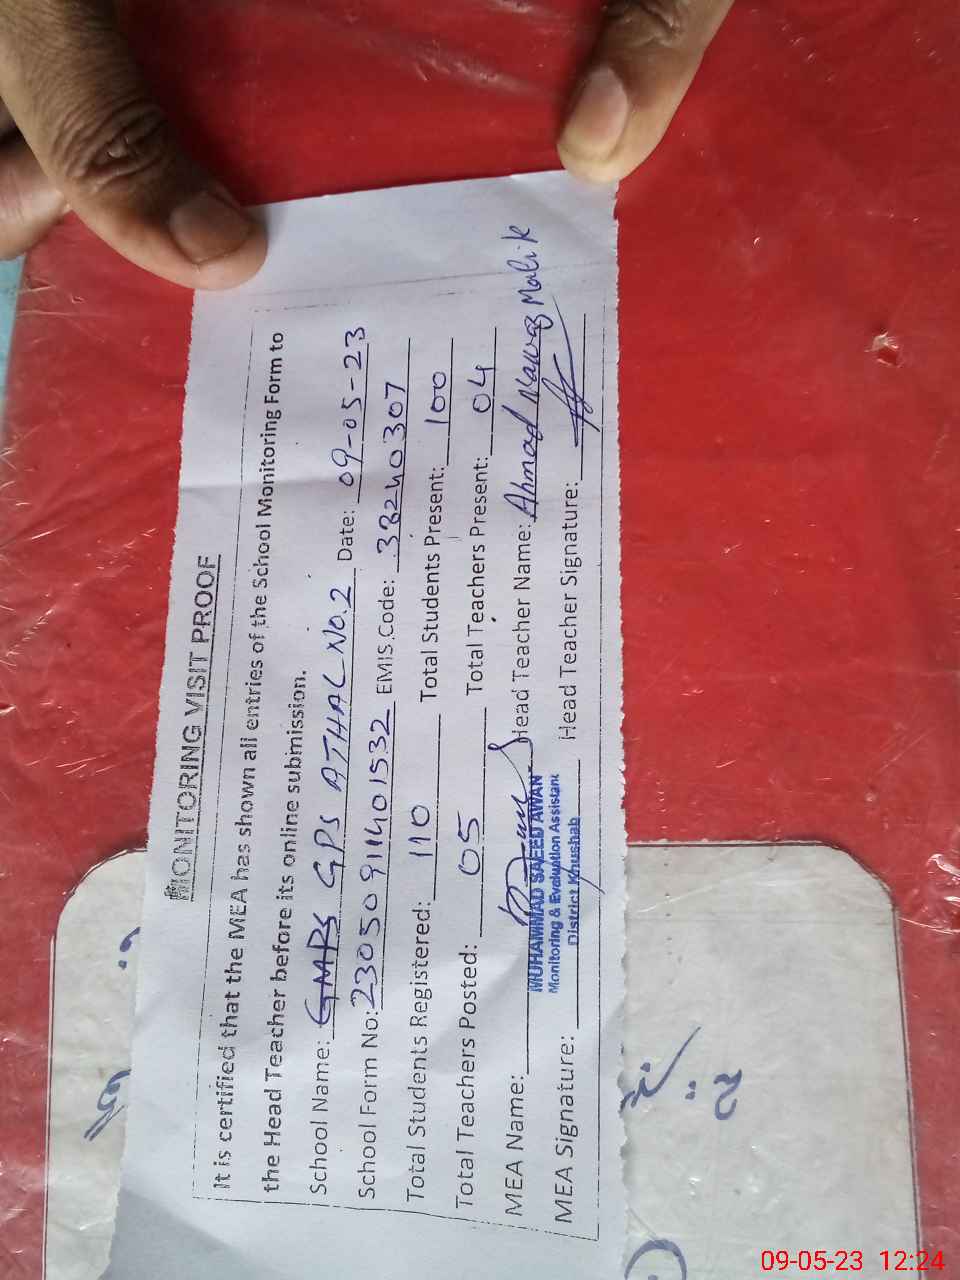 MONITORING VISIT PROOF
It is certified that the MEA has shown all entries of the School Monitoring Form to
the Head Teacher before its online submission.
School Name: GMPS GPS ATHAL No.2 Date: 09-05-23
School Form No: 230509111401532 EMIS Code: 38240307
Total Students Registered: 110 Total Students Present: 100
Total Teachers Posted: 05 Total Teachers Present: 04
MEA Name: Head Teacher Name: Ahmad Nawaz Malik
MUHAMMAD SAEED AWAN
Monitoring & Evaluation Assistant
District Khushab
MEA Signature: Head Teacher Signature:
09-05-23 12:24